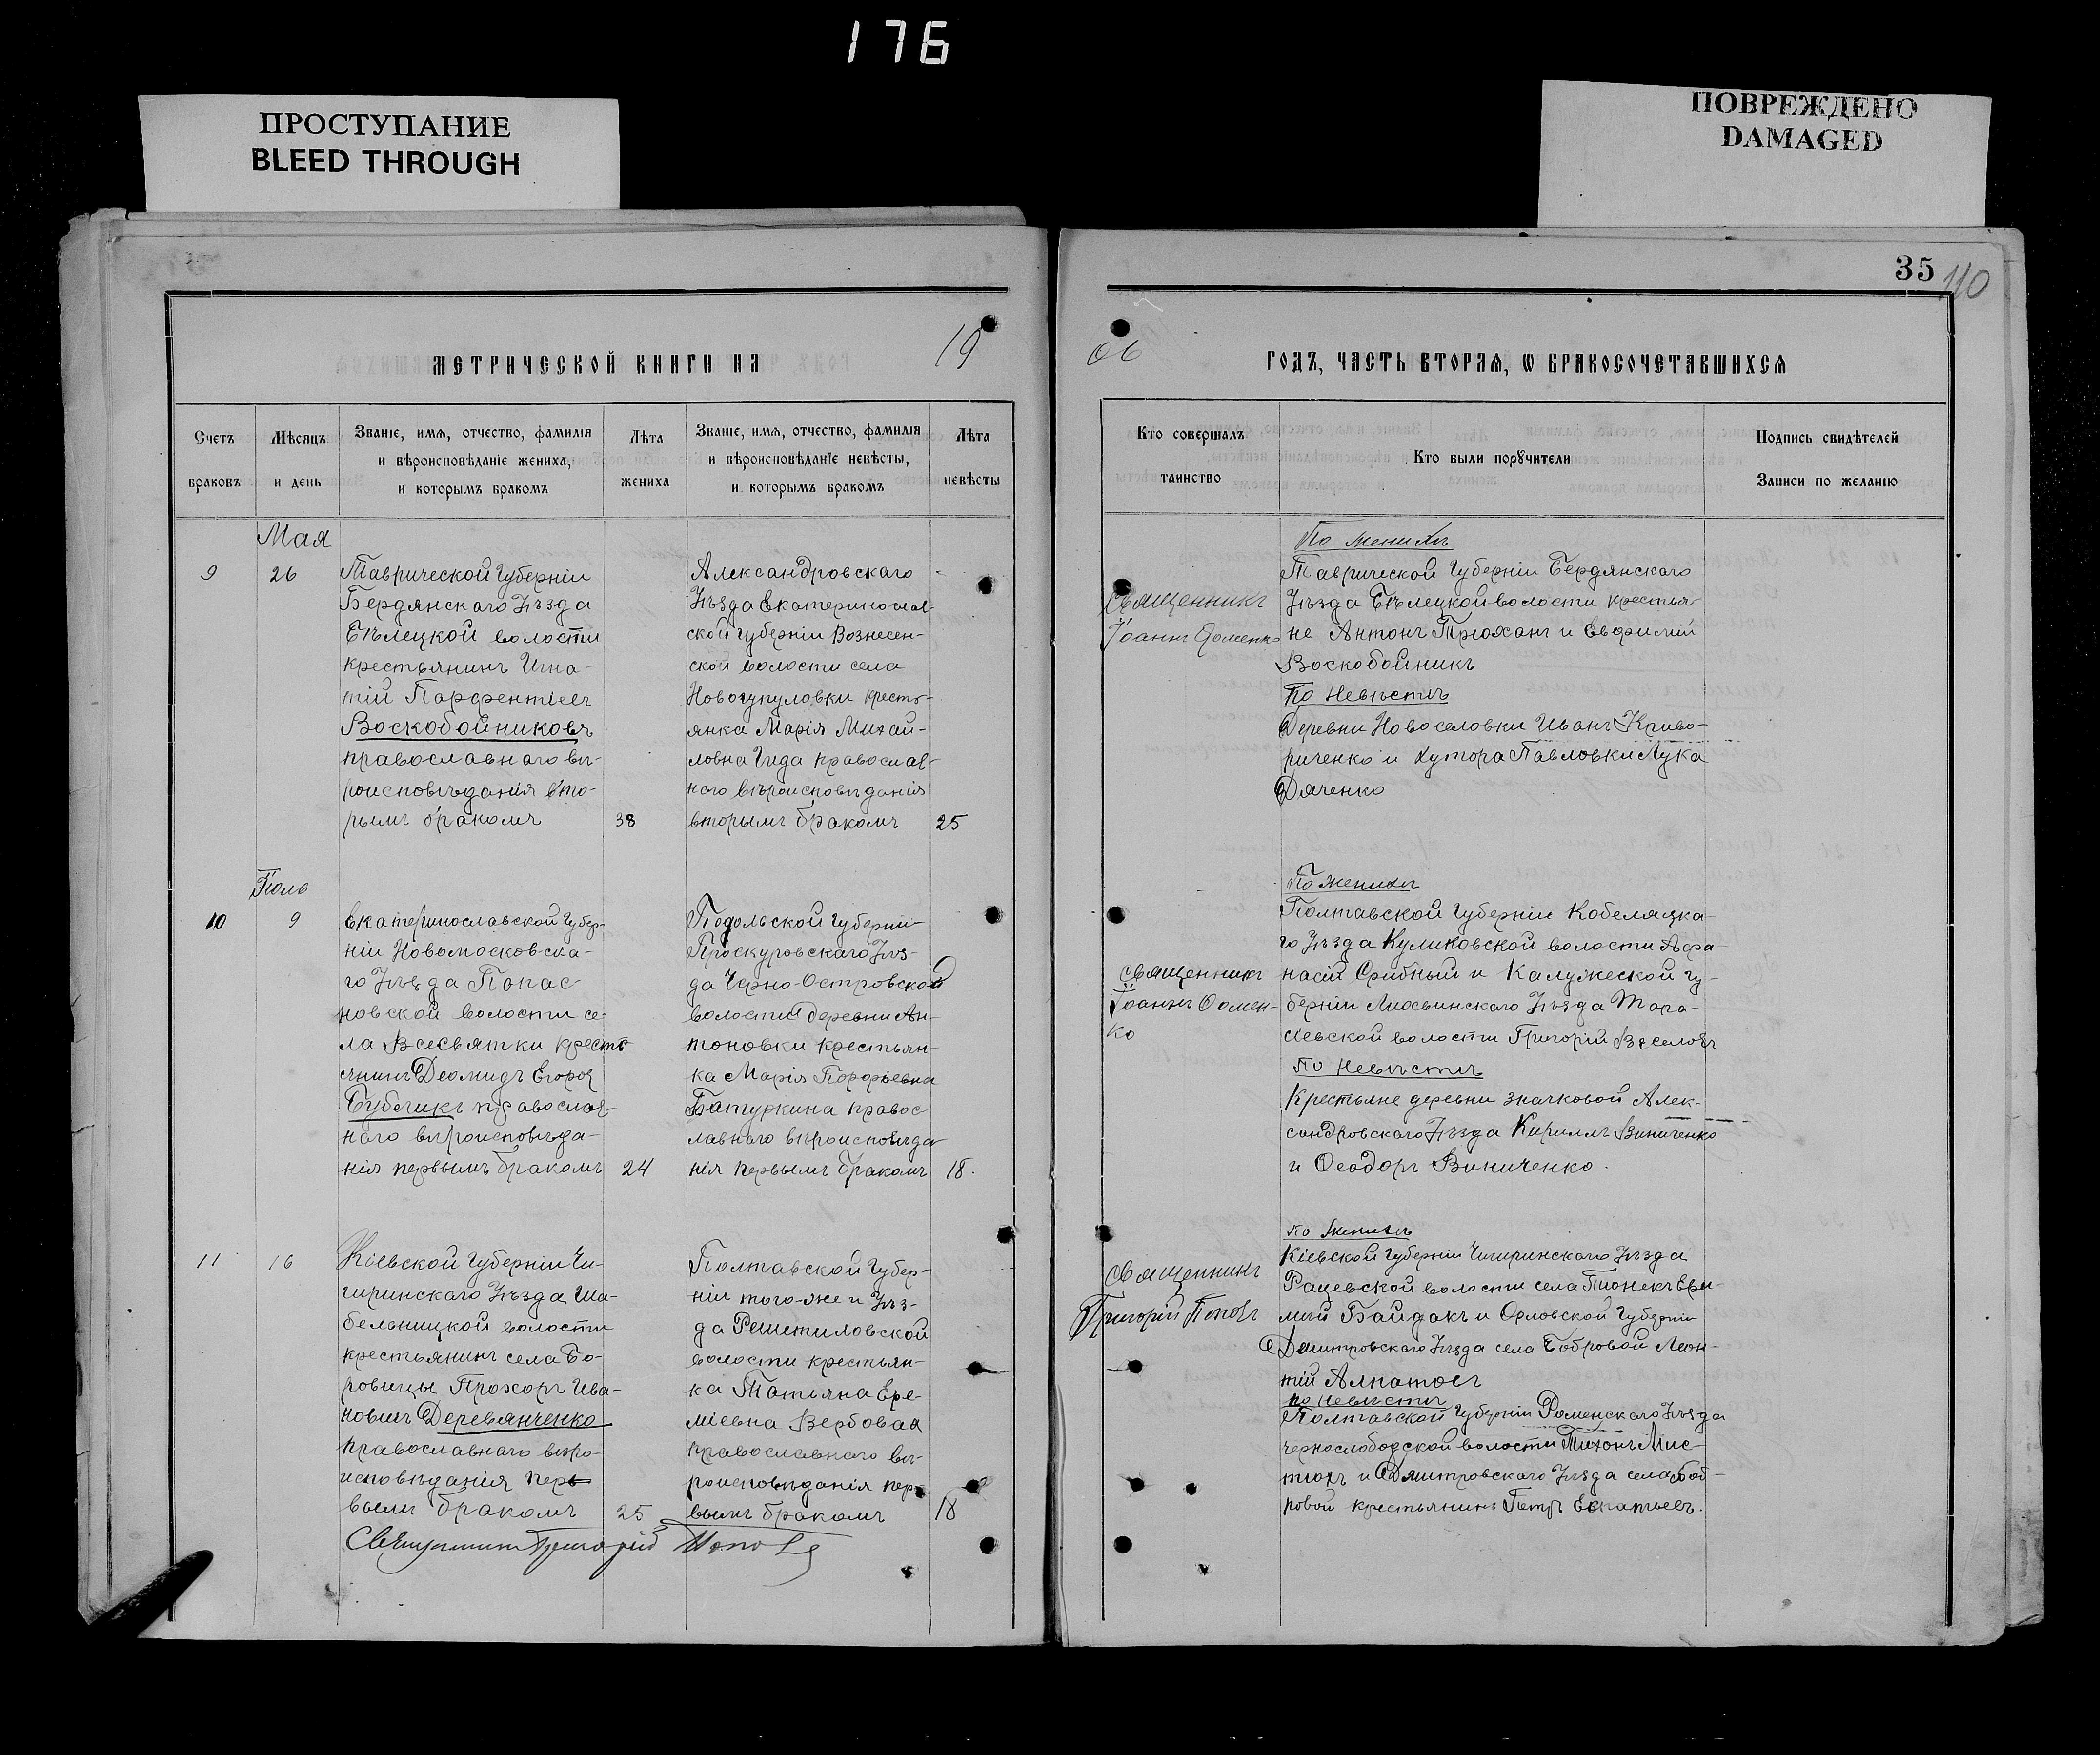 176
ПРОСТУПАНИЕ
BLEED THROUGH
ПОВРЕЖДЕНО
DAMAGED
35
110
МЕТРИЧЕСКОЙ КНИГИ НА 19
06 ГОДЪ, ЧАСТЬ ВТОРАЯ, Ѡ БРАКОСОЧЕТАВШИХСЯ
Счетъ
браковъ
Мѣсяцъ
и день
Званіе, имя, отчество, фамилія
и вѣроисповѣданіе жениха,
и которымъ бракомъ
Лѣта
жениха
Званіе, имя, отчество, фамилія
и вѣроисповѣданіе невѣсты,
и которымъ бракомъ
Лѣта
невѣсты
Кто совершалъ
таинство
Кто были порѹчители
Подпись свидѣтелей
Записи по желанію
Мая
9
26
Таврической Губерніи
Бердянскаго Уѣзда
Бѣлецкой волости
крестьянинъ Игна-
тій Парфентіевъ
Воскобойниковъ
православнаго вѣ-
роисповѣданія вто-
рымъ бракомъ
38
Александровскаго
Уѣзда Екатеринослав-
ской губерніи Вознесен-
ской волости села
Новогупуловки кресть-
янка Марія Михай-
ловна Гида православ-
наго вѣроисповѣданія
вторымъ бракомъ
25
Священникъ
Іоаннъ Доменко
По женихѣ
Таврической Губерніи Бердянскаго
Уѣзда Бѣлецкой волости крестья-
не Антонъ Трюханъ и Евфимій
Воскобойникъ
По Невѣстѣ
Деревни Новоселовки Иванъ Криво-
риченко и хутора Павловки Лука
Дяченко
Іюль
10
9
Екатеринославской Губер-
ніи Новомосковска-
го Уѣзда Попас-
новской волости се-
ла Всесвятки кресть-
янинъ Деомидъ Егоровъ
Бубликъ православ-
наго вѣроисповѣда-
нія первымъ бракомъ
24
Подольской Губерніи
Проскуровскаго Уѣз-
да Черно-Островской
волости деревни Ан-
тоновки крестьян-
ка Марія Порфиевна
Батуркина правос-
лавнаго вѣроисповѣда-
нія первымъ бракомъ
18.
священникъ
Іоаннъ Домен-
ко
По Женихѣ
Полтавской Губерніи Кобеляцка-
го Уѣзда Куликовской волости Афа-
насій Срибный и Калужеской гу-
берніи Лихвинскаго Уѣзда
волости Григорій Веселовъ
По Невѣстѣ
Крестьяне деревни Значковой Алек-
сандровскаго Уѣзда Кириллъ Виниченко
и Феодоръ Виниченко.
11
16
Кіевской Губерніи Чи-
гиринскаго Уѣзда Ша-
бельницкой волости
крестьянинъ села Бо-
ровицы Прохоръ Ива-
новичъ Деревянченко
православнаго вѣро-
исповѣданія пер-
вымъ бракомъ
25
Полтавской Губер-
ніи того-же и Уѣз-
да Решетиловской
волости крестьян-
ка Татьяна Ере-
міевна Вербовая
православнаго вѣ-
роисповѣданія пер-
вымъ бракомъ
18
Священникъ Григорій Поповъ
священникъ
Григорій Поповъ
По Женихѣ
Кіевской Губерніи Чигиринскаго Уѣзда
Рацевской волости села Евфи-
мій Байдакъ и Орловской Губерніи
Дмитровскаго Уѣзда села Бобровой Леон-
тій Алпатовъ
по Невѣстѣ
Полтавской Губерніи Роменскаго Уѣзда
чернослободской волости Тихонъ Мис-
тюхъ и Дмитровскаго Уѣзда села Боб-
ровой крестьянинъ Петръ